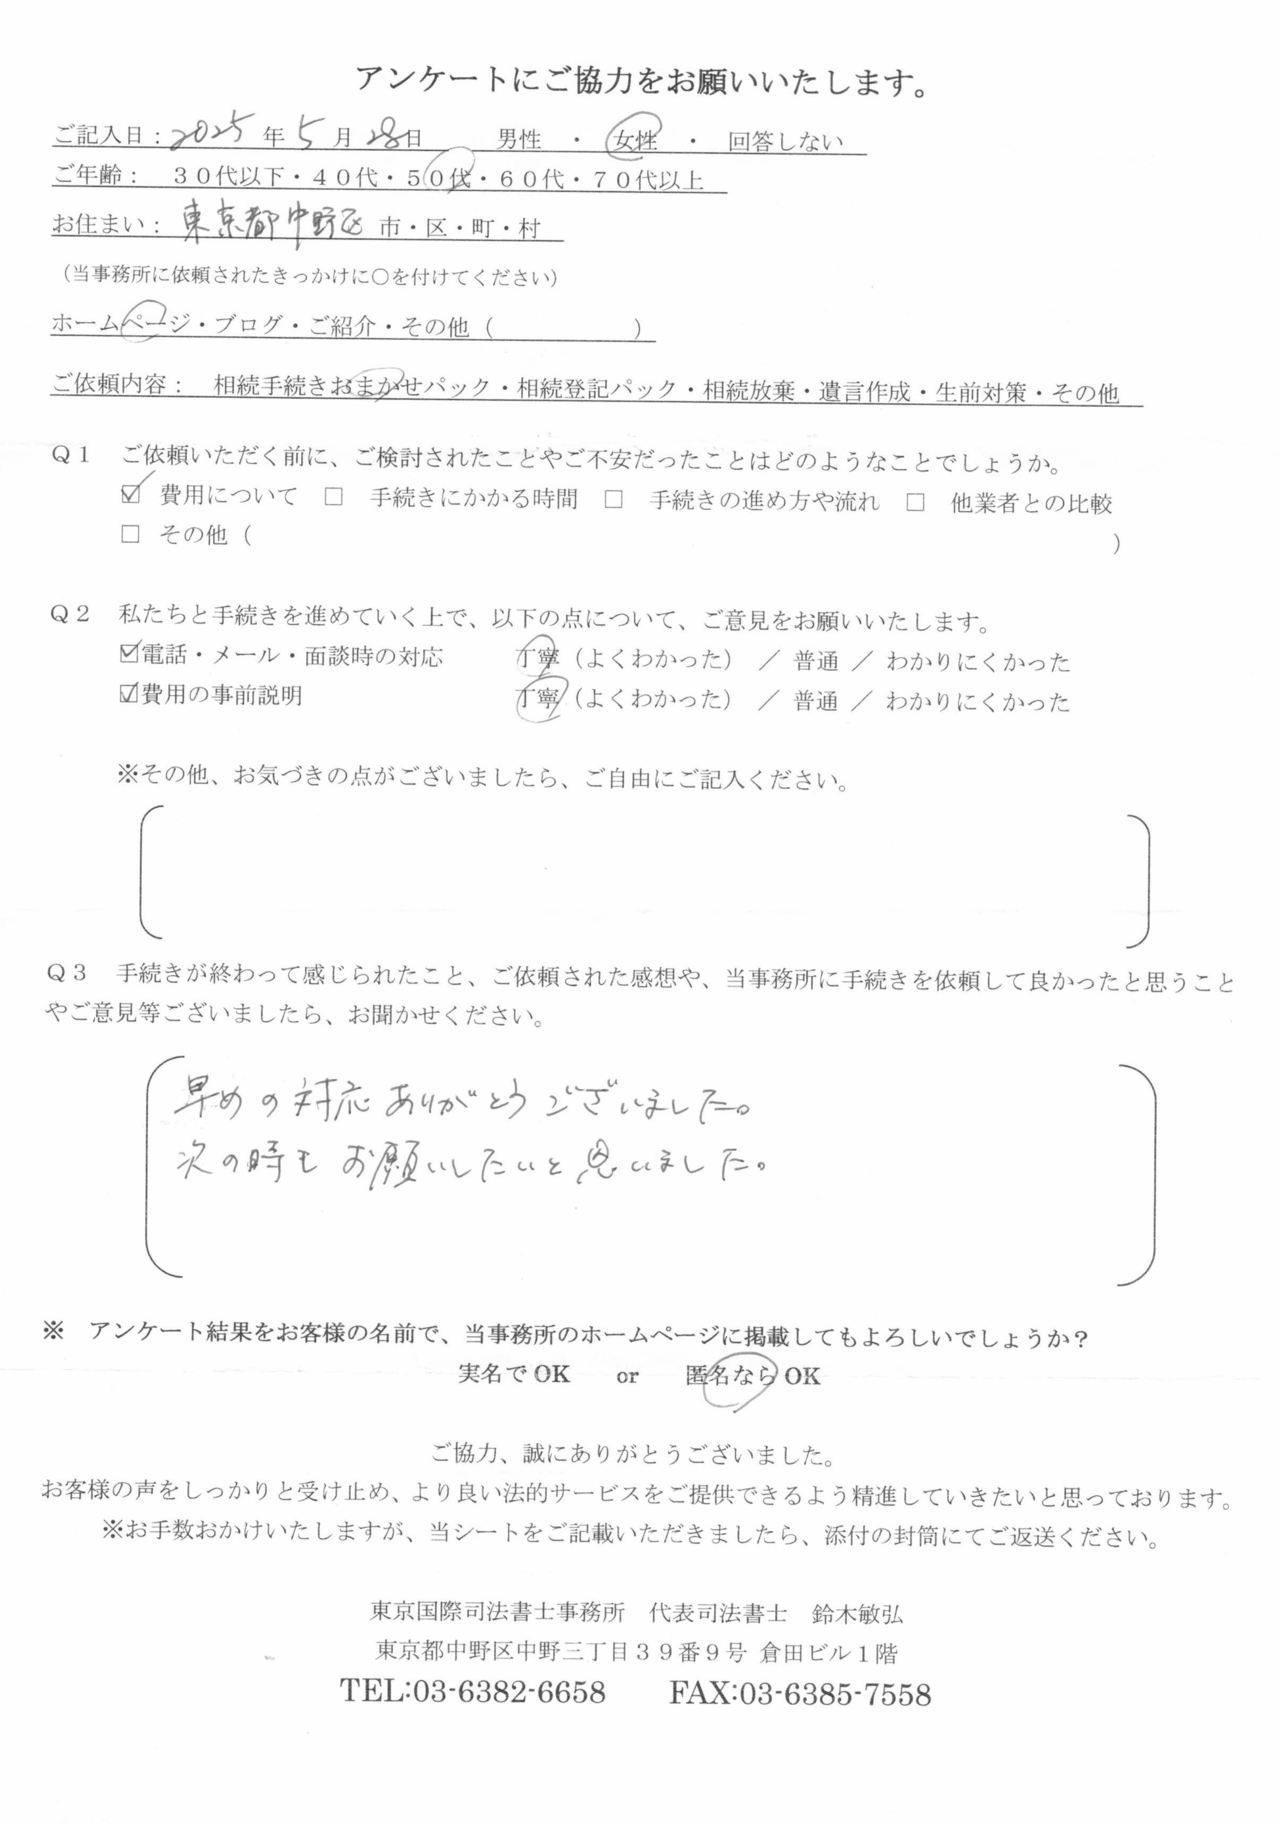 アンケートにご協力をお願いいたします。
ご記入日：2025年5月28日　男性　・　女性　・　回答しない
ご年齢：　３０代以下・４０代・５０代・６０代・７０代以上
お住まい：東京都中野区 市・区・町・村
（当事務所に依頼されたきっかけに〇を付けてください）
ホームページ・ブログ・ご紹介・その他（　　　　　　）
ご依頼内容：　相続手続きおまかせパック・相続登記パック・相続放棄・遺言作成・生前対策・その他
Ｑ１　ご依頼いただく前に、ご検討されたことやご不安だったことはどのようなことでしょうか。
☑ 費用について　□ 手続きにかかる時間　□ 手続きの進め方や流れ　□ 他業者との比較
□ その他（　　　　　　）
Ｑ２　私たちと手続きを進めていく上で、以下の点について、ご意見をお願いいたします。
☑電話・メール・面談時の対応　丁寧（よくわかった）　／　普通　／　わかりにくかった
☑費用の事前説明　丁寧（よくわかった）　／　普通　／　わかりにくかった
※その他、お気づきの点がございましたら、ご自由にご記入ください。
Ｑ３　手続きが終わって感じられたこと、ご依頼された感想や、当事務所に手続きを依頼して良かったと思うこと
やご意見等ございましたら、お聞かせください。
早めの対応ありがとうございました。
次の時もお願いしたいと思いました。
※　アンケート結果をお客様の名前で、当事務所のホームページに掲載してもよろしいでしょうか？
実名でOK　or　匿名ならOK
ご協力、誠にありがとうございました。
お客様の声をしっかりと受け止め、より良い法的サービスをご提供できるよう精進していきたいと思っております。
※お手数おかけいたしますが、当シートをご記載いただきましたら、添付の封筒にてご返送ください。
東京国際司法書士事務所　代表司法書士　鈴木敏弘
東京都中野区中野三丁目３９番９号 倉田ビル１階
TEL:03-6382-6658　FAX:03-6385-7558